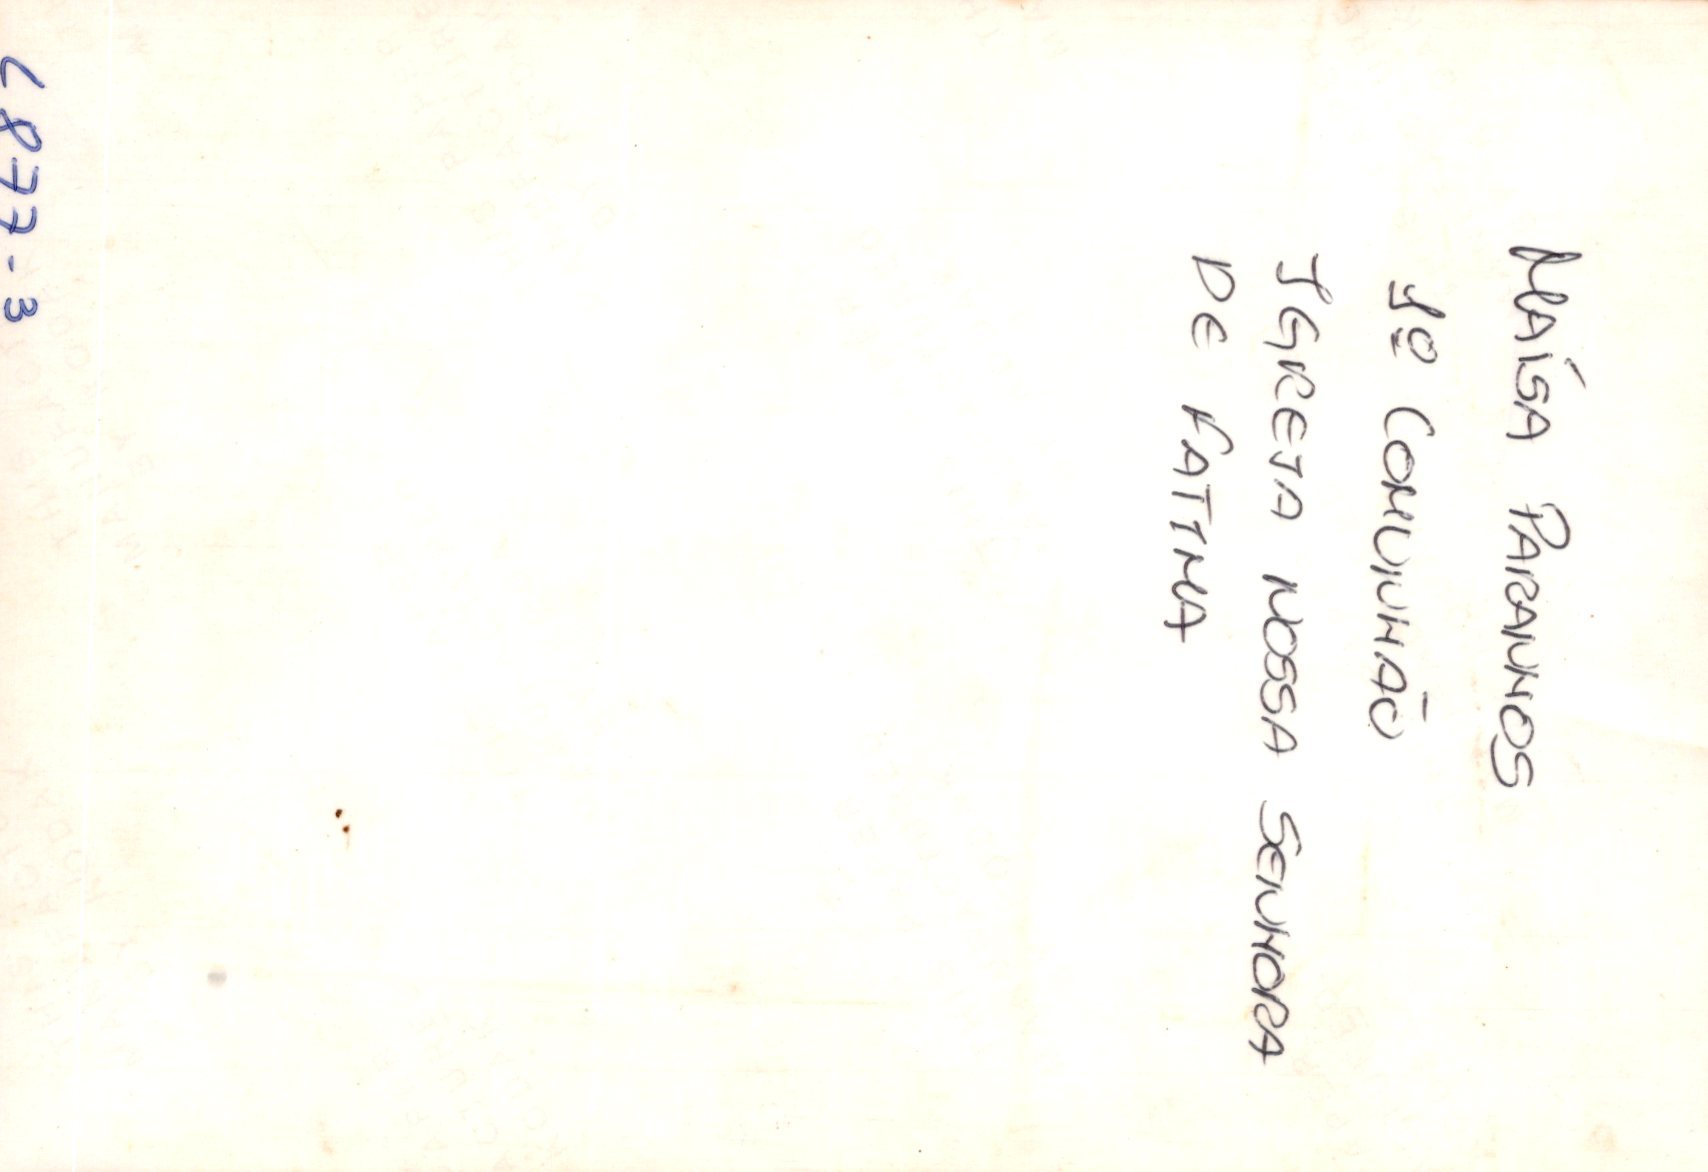 MAÍSA PARANHOS
1º COMUNHÃO
IGREJA NOSSA SENHORA
DE FATIMA
L877-3